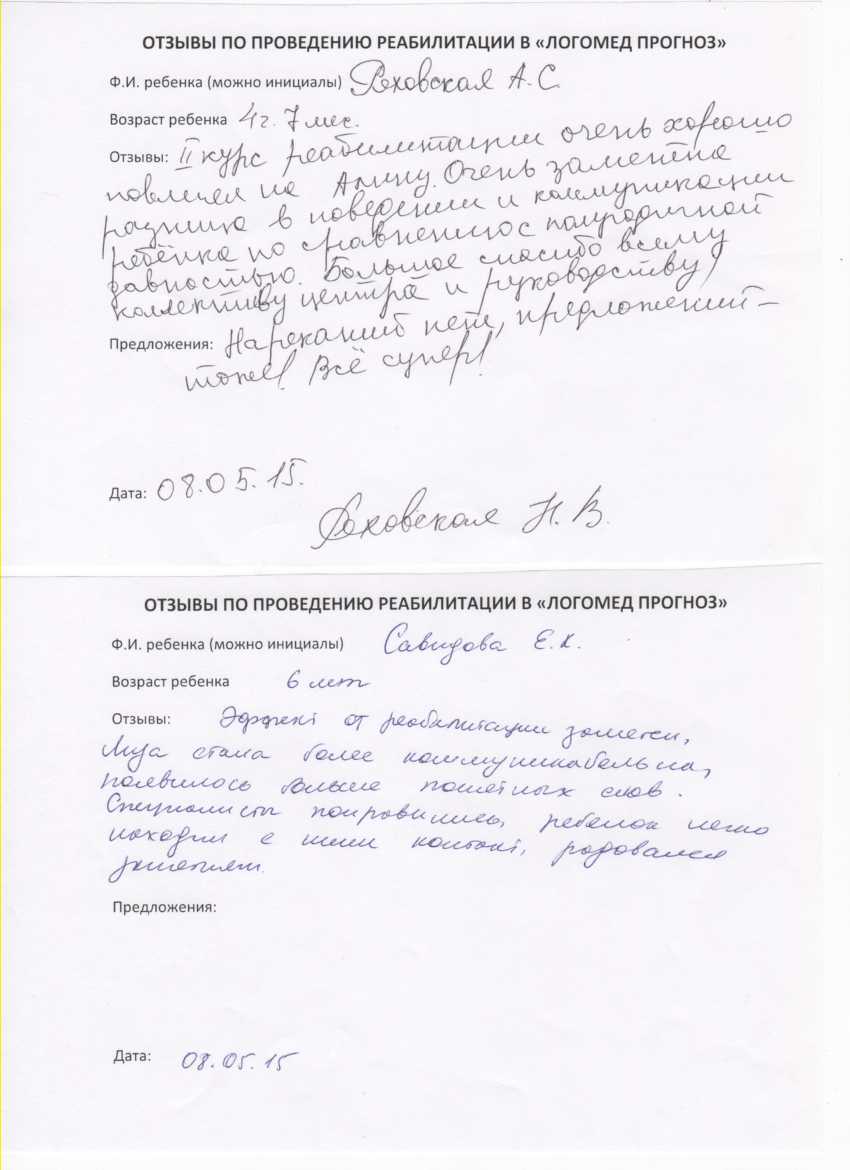 ОТЗЫВЫ ПО ПРОВЕДЕНИЮ РЕАБИЛИТАЦИИ В «ЛОГОМЕД ПРОГНОЗ»
Ф.И. ребенка (можно инициалы) Реховская А.С.
Возраст ребенка 4 г. 7 мес.
Отзывы: II курс реабилитации очень хорошо
повлиял на Алину. Очень заметна
разница в поведении и коммуникации
ребёнка по сравнению с полугодичной
давностью. Большое спасибо всему
коллективу центра и руководству!
Предложения: Нареканий нет, предложений –
тоже! Всё супер!
Дата: 08.05.15.
Реховская Н.В.
ОТЗЫВЫ ПО ПРОВЕДЕНИЮ РЕАБИЛИТАЦИИ В «ЛОГОМЕД ПРОГНОЗ»
Ф.И. ребенка (можно инициалы) Савидова Е.К.
Возраст ребенка 6 лет
Отзывы: Эффект от реабилитации заметен,
стала более коммуникабельна,
появилось больше понятных слов.
Специалисты понравились, ребенок легко
находил с ними контакт, радовался
занятиям.
Предложения:
Дата: 08.05.15